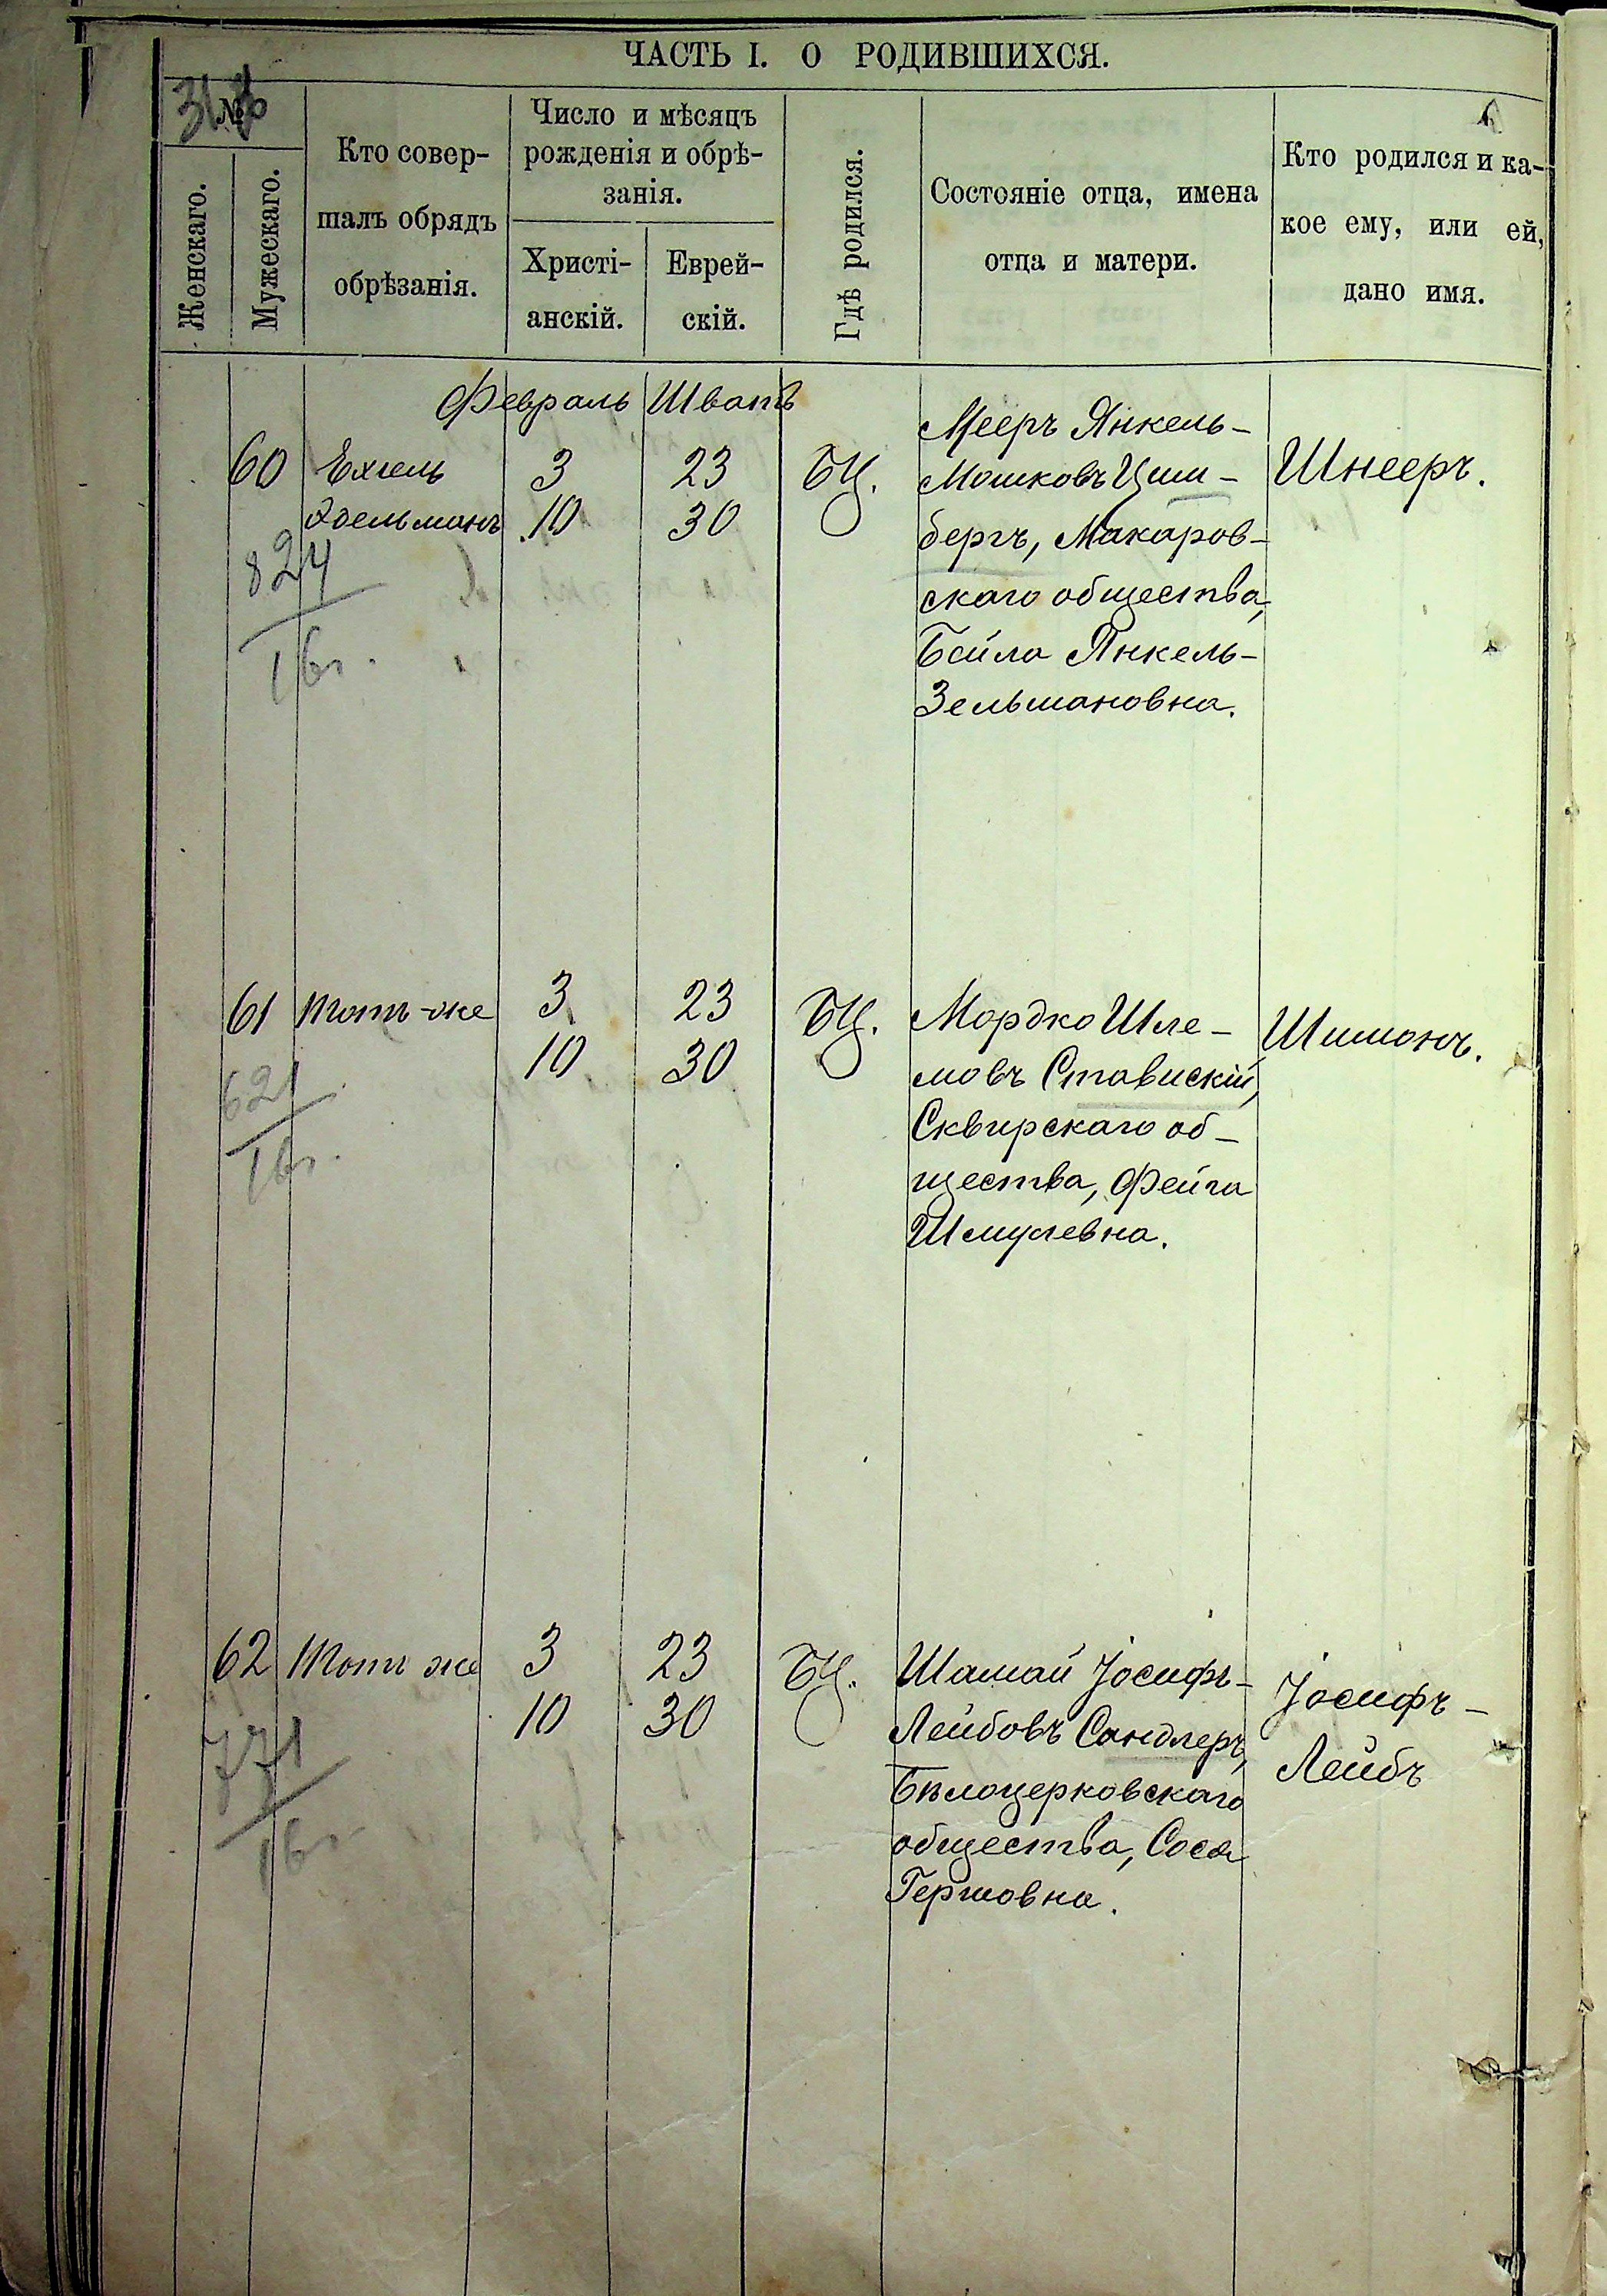 ЧАСТЬ I. О РОДИВШИХСЯ.
№
Женскаго.
Мужескаго.
Кто совер-
шалъ обрядъ
обрѣзанія.
Число и мѣсяцъ
рожденія и обрѣ-
занія.
Христі-
анскій.
Еврей-
скій.
Гдѣ родился.
Состояніе отца, имена
отца и матери.
Кто родился и ка-
кое ему, или ей,
дано имя.
Февраль Шватъ
60 Ехиель 3 23 БЦ.
Эдельманъ 10 30
824
16г.
Мееръ Янкель-
Мошковъ Цим-
бергъ, Макаров-
скаго общества,
Бейла Янкель-
Зельмановна.
Шнееръ.
61 Тотъ-же 3 23 БЦ.
10 30
621
16г.
Мордко Шле-
мовъ Ставискій,
Сквирскаго об-
щества, Фейга
Шмулевна.
Шимонъ.
62 Тотъ же 3 23 БЦ.
10 30
771
16г.
Шамай Іосифъ-
Лейбовъ Сандлеръ,
Бѣлоцерковскаго
общества, Сося
Гершовна.
Іосифъ-
Лейбъ